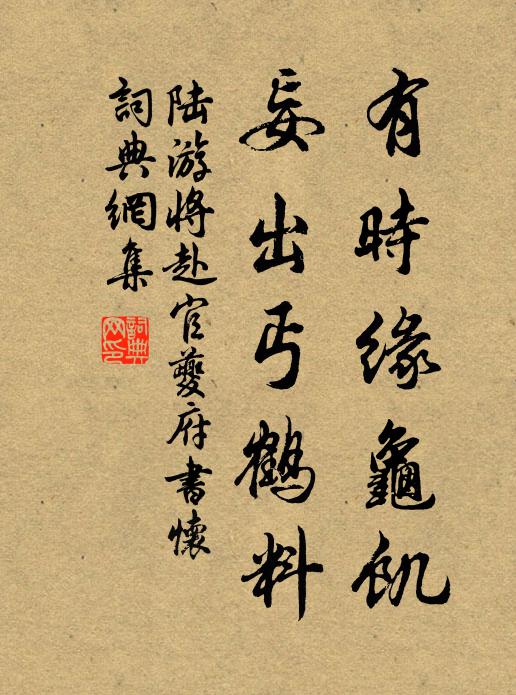 有時緣龜飢
妄出丐鶴料
陆游將赴官夔府書懷
詞典網集
詞典网印